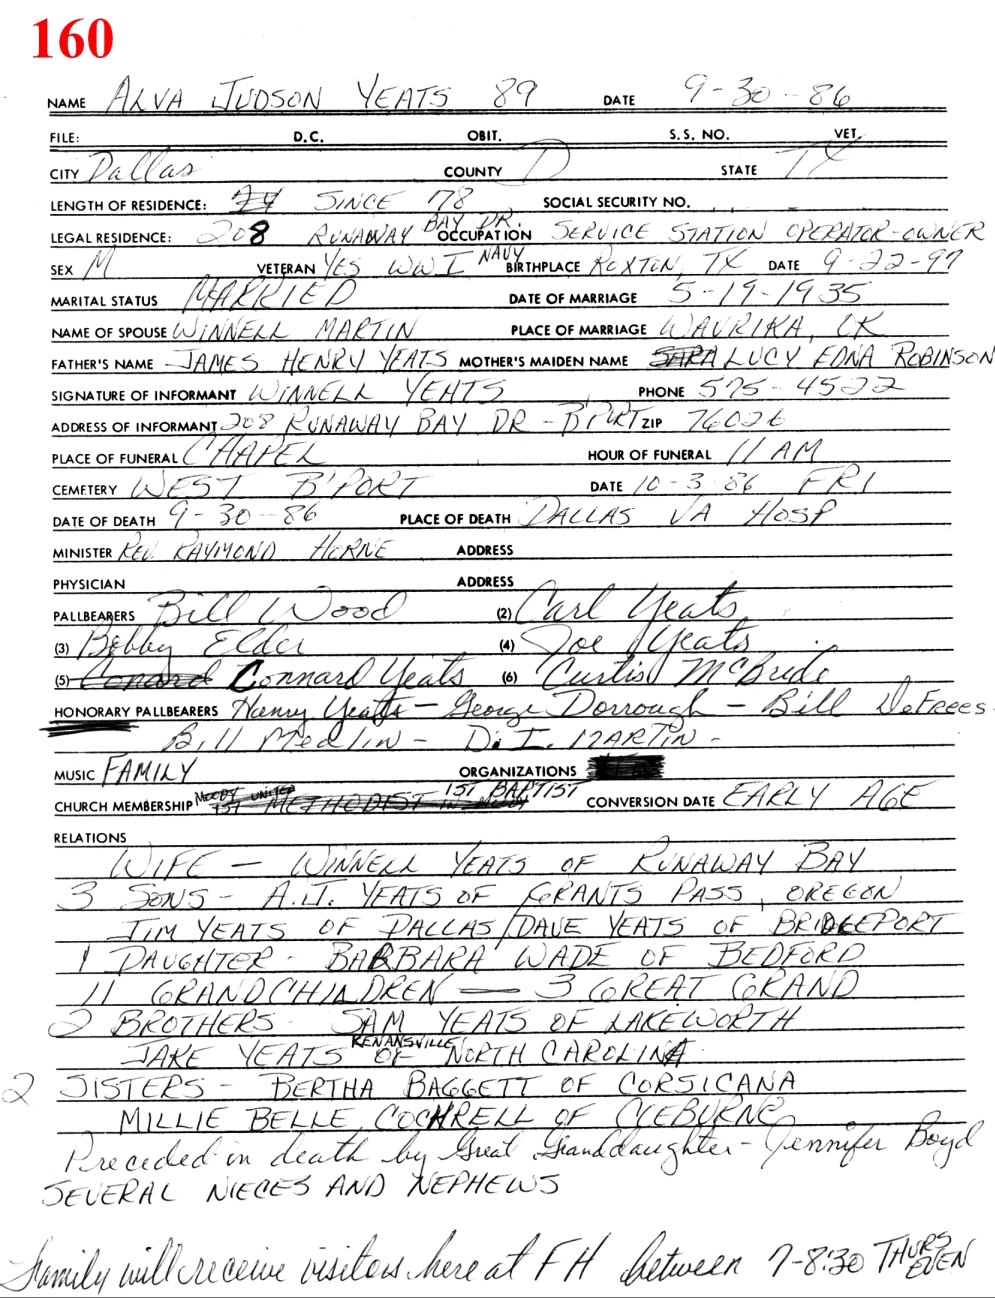 160
NAME ALVA JUDSON YEATS 89 DATE 9-30-86
FILE: D.C. OBIT. S.S. NO. VET.
CITY Dallas COUNTY D STATE TX
LENGTH OF RESIDENCE: SINCE '78 SOCIAL SECURITY NO.
LEGAL RESIDENCE: 208 RUNAWAY BAY DR. OCCUPATION SERVICE STATION OPERATOR-OWNER
SEX M VETERAN YES WWI NAVY BIRTHPLACE ROXTON, TX DATE 9-22-97
MARITAL STATUS MARRIED DATE OF MARRIAGE 5-19-1935
NAME OF SPOUSE WINNELL MARTIN PLACE OF MARRIAGE WAURIKA, OK
FATHER'S NAME JAMES HENRY YEATS MOTHER'S MAIDEN NAME SARA LUCY EDNA ROBINSON
SIGNATURE OF INFORMANT WINNELL YEATS PHONE 575-4522
ADDRESS OF INFORMANT 208 RUNAWAY BAY DR - B'PORT ZIP 76026
PLACE OF FUNERAL CHAPEL HOUR OF FUNERAL 11 AM
CEMETERY WEST B'PORT DATE 10-3-86 FRI
DATE OF DEATH 9-30-86 PLACE OF DEATH DALLAS VA HOSP
MINISTER REV. RAYMOND HORNE ADDRESS
PHYSICIAN ADDRESS
PALLBEARERS Bill Wood (2) Carl Yeats
(3) Bobby Elder (4) Joe Yeats
(5) Conard Connard Yeats (6) Curtis McBride
HONORARY PALLBEARERS Henry Yeats - George Dorrough - Bill DeFrees
Bill Medlin - D.I. MARTIN -
MUSIC FAMILY ORGANIZATIONS
CHURCH MEMBERSHIP MOODY UNITED 1ST METHODIST IN MOODY 1ST BAPTIST CONVERSION DATE EARLY AGE
RELATIONS
WIFE - WINNELL YEATS OF RUNAWAY BAY
3 SONS - A.J. YEATS OF GRANTS PASS, OREGON
JIM YEATS OF DALLAS / DAVE YEATS OF BRIDGEPORT
1 DAUGHTER - BARBARA WADE OF BEDFORD
11 GRANDCHILDREN - 3 GREAT GRAND
2 BROTHERS - SAM YEATS OF LAKEWORTH
JAKE YEATS OF RENANSVILLE NORTH CAROLINA
2 SISTERS - BERTHA BAGGETT OF CORSICANA
MILLIE BELLE COCHRELL OF CLEBURNE
Preceded in death by Great Granddaughter - Jennifer Boyd
SEVERAL NIECES AND NEPHEWS
Family will receive visitors here at FH between 7-8:30 THURS EVEN